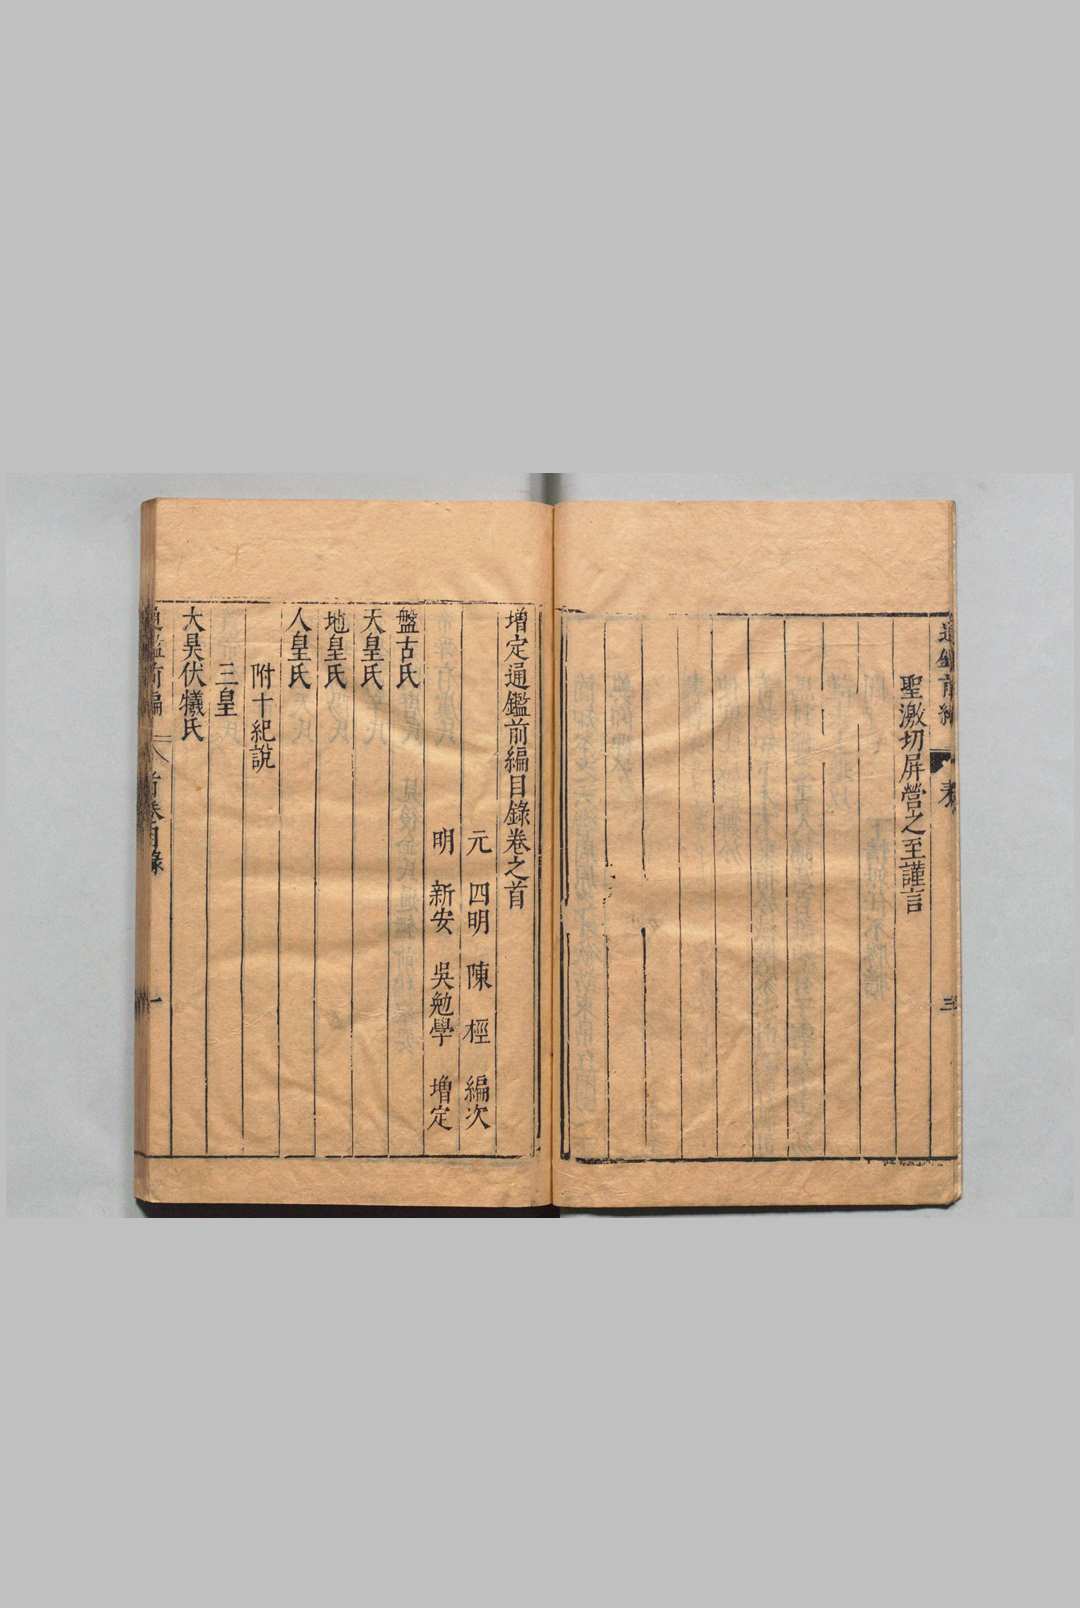 聖激切屏營之至謹言
三
增定通鑑前編目錄卷之首
元　四明　陳　桱　編次
明　新安　吳勉學　增定
盤古氏
天皇氏
地皇氏
人皇氏
附十紀說
三皇
大昊伏犧氏
一